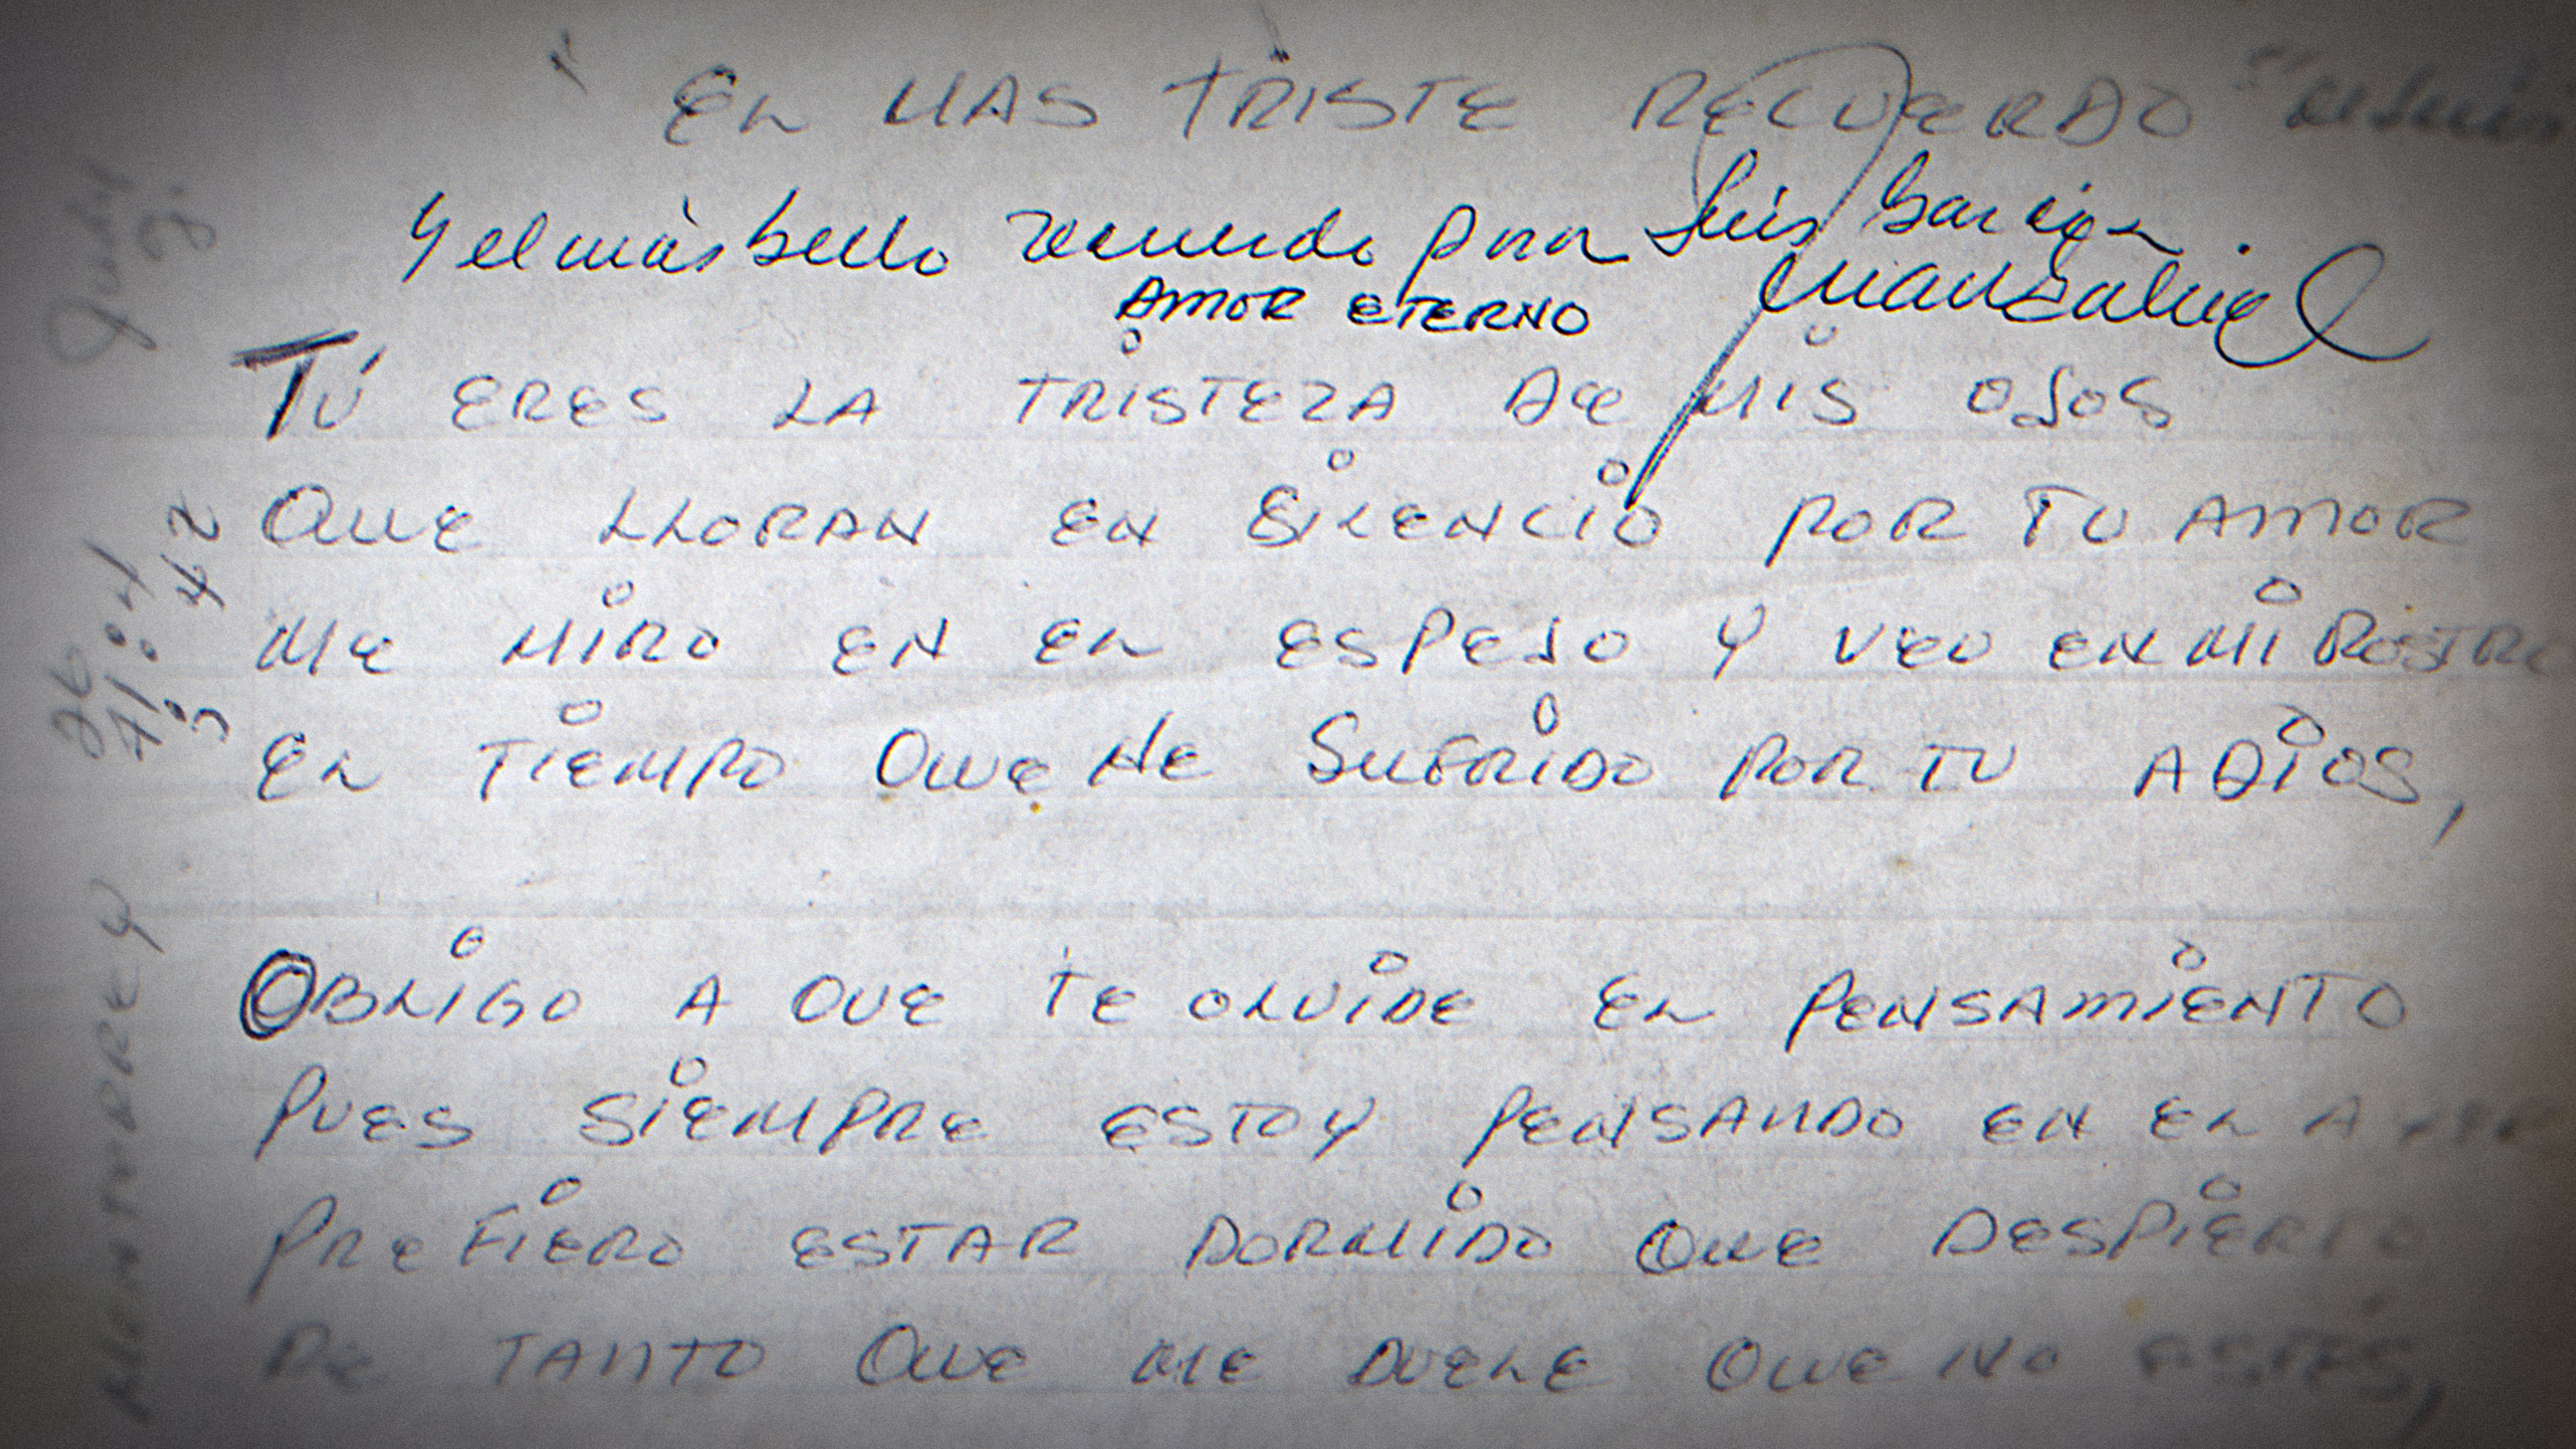 EL MAS TRISTE RECUERDO "
Y el más bello recuerdo para Luis García
Manzabiel
AMOR ETERNO
TÚ ERES LA TRISTEZA DE MIS OJOS
QUE LLORAN EN SILENCIO POR TU AMOR
ME MIRO EN EL ESPEJO Y VEO EN MI ROSTRO
EL TIEMPO QUE HE SUFRIDO POR TU ADIOS,
OBLIGO A QUE TE OLVIDE EL PENSAMIENTO
PUES SIEMPRE ESTOY PENSANDO EN EL A
PREFIERO ESTAR DORMIDO QUE DESPIERTO
DE TANTO QUE ME DUELE QUE NO ESTÉS,
MONTERREY